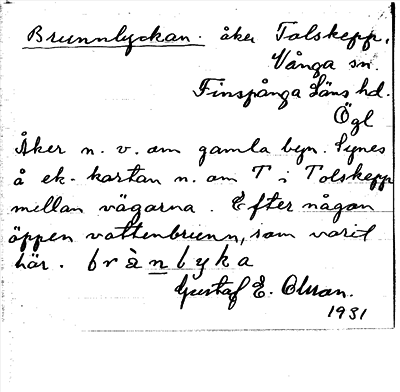 Brunnlyckan. åker Tolskepp,
Vånga sn.
Finspånga Läns hd.
Ögl
Åker n. v. om gamla byn. Synes
å ek. kartan n. om T i Tolskepp
mellan vägarna. Efter någon
öppen vattenbrunn, som varit
här. brànlyka
Gustaf E. Olsson.
1931